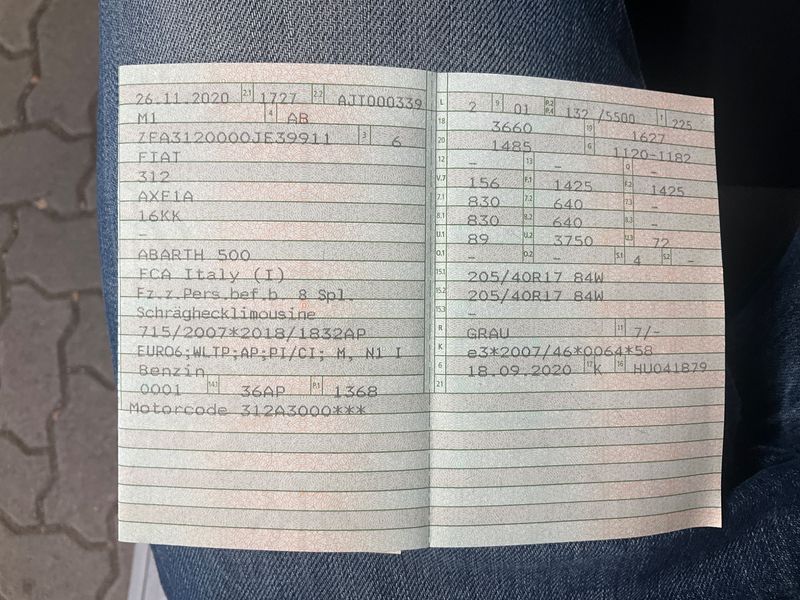 26.11.2020 2.1 1727 2.2 AJT000339
M1 4 AB
ZFA3120000JE39911 3 6
FIAT
312
AXF1A
16KK
–
ABARTH 500
FCA Italy (I)
Fz.z.Pers.bef.b. 8 Spl.
Schräghecklimousine
715/2007*2018/1832AP
EURO6;WLTP;AP;PI/CI; M, N1 I
Benzin
0001 14.1 36AP P.1 1368
Motorcode 312A3000***
L 2 9 01 P.2 P.4 132 /5500 T 225
18 3660 19 1627
20 1485 G 1120-1182
12 – 13 – Q –
V.7 156 F.1 1425 F.2 1425
7.1 830 7.2 640 7.3 –
8.1 830 8.2 640 8.3 –
U.1 89 U.2 3750 U.3 72
O.1 – O.2 – S.1 4 S.2 –
15.1 205/40R17 84W
15.2 205/40R17 84W
15.3 –
R GRAU 11 7/–
K e3*2007/46*0064*58
6 18.09.2020 17 K 16 HU041879
21